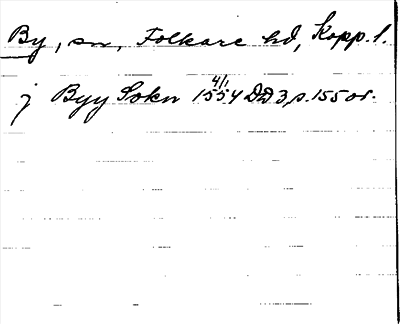 By, sn, Folkare hd, Kopp. l.
j Byy Sokn 4/1 1554 DD 3 p. 155 or.